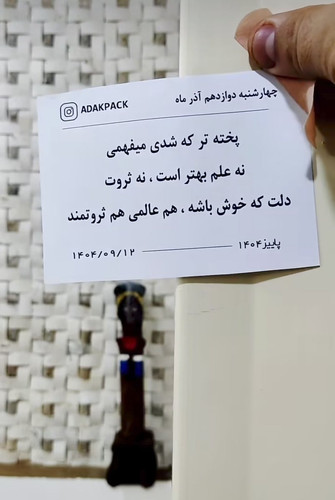 ADAKPACK
چهارشنبه دوازدهم آذر ماه
پخته تر که شدی میفهمی
نه علم بهتر است ، نه ثروت
دلت که خوش باشه ، هم عالمی هم ثروتمند
پاییز۱۴۰۴
۱۴۰۴/۰۹/۱۲